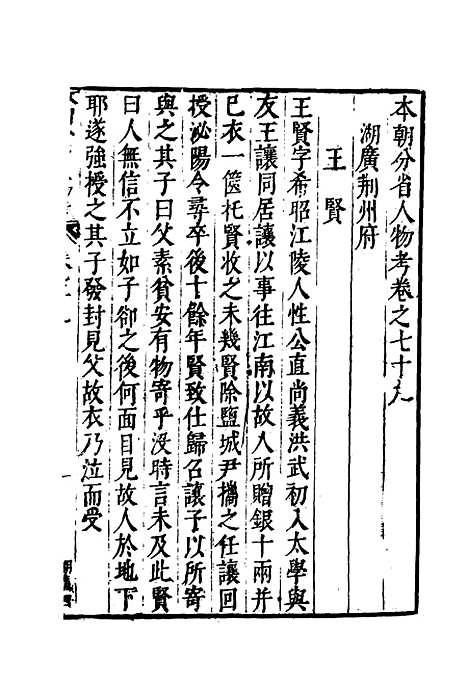 本朝分省人物考卷之七十九
湖廣荆州府
王賢
王賢字希昭江陵人性公直尚義洪武初入太學與
友王讓同居讓以事往江南以故人所贈銀十兩并
已衣一篋托賢收之未幾賢除鹽城尹攜之任讓回
授泌陽令尋卒後十餘年賢致仕歸召讓子以所寄
與之其子曰父素貧安有物寄乎没時言未及此賢
曰人無信不立如子卻之後何面目見故人於地下
耶遂強授之其子發封見父故衣乃泣而受